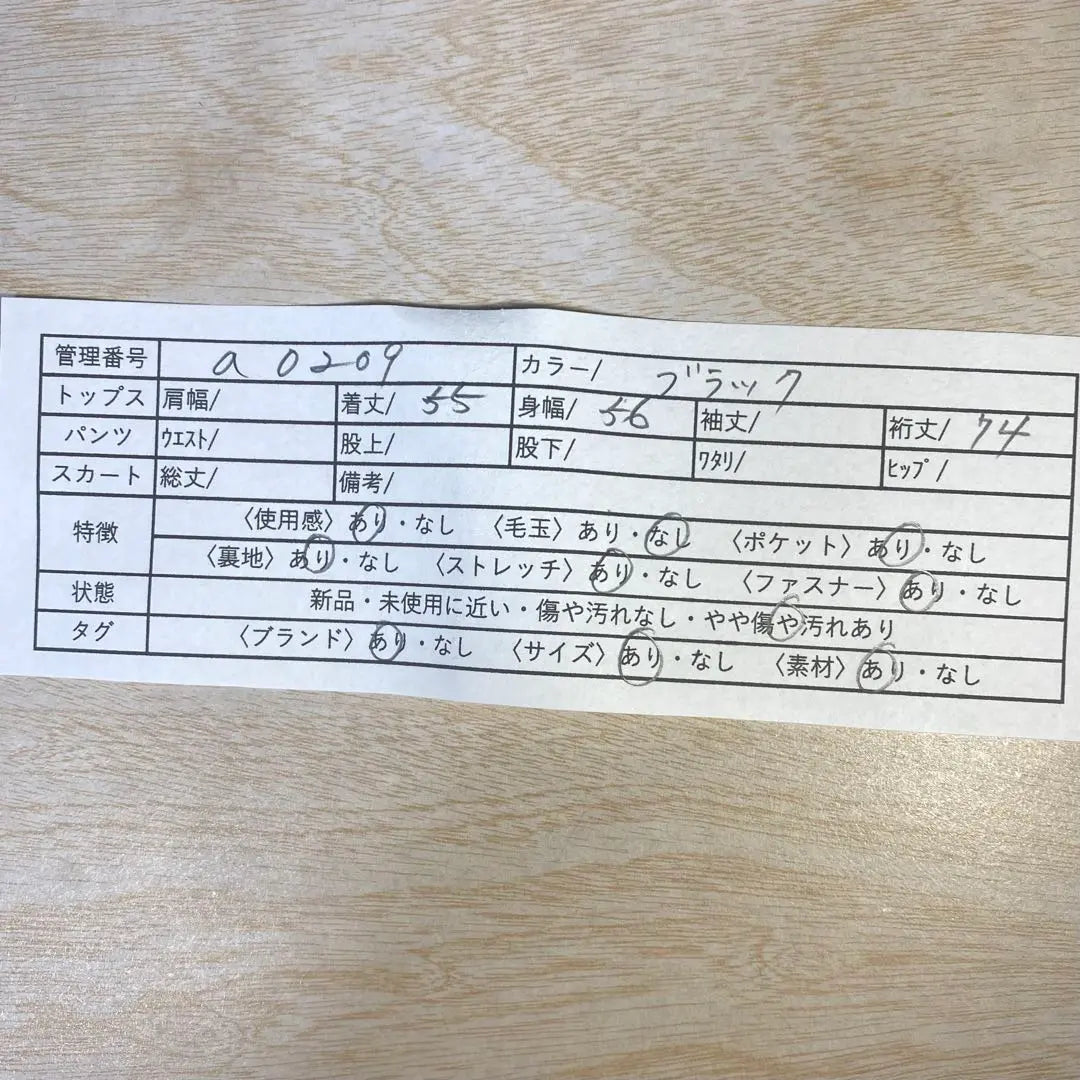 管理番号 a0209 カラー/ ブラック
トップス 肩幅/ 着丈/ 55 身幅/ 56 袖丈/ 裄丈/ 74
パンツ ｳｴｽﾄ/ 股上/ 股下/ ﾜﾀﾘ/ ﾋｯﾌﾟ/
スカート 総丈/ 備考/
特徴 〈使用感〉あり・なし 〈毛玉〉あり・なし 〈ポケット〉あり・なし
〈裏地〉あり・なし 〈ストレッチ〉あり・なし 〈ファスナー〉あり・なし
状態 新品・未使用に近い・傷や汚れなし・やや傷や汚れあり
タグ 〈ブランド〉あり・なし 〈サイズ〉あり・なし 〈素材〉あり・なし